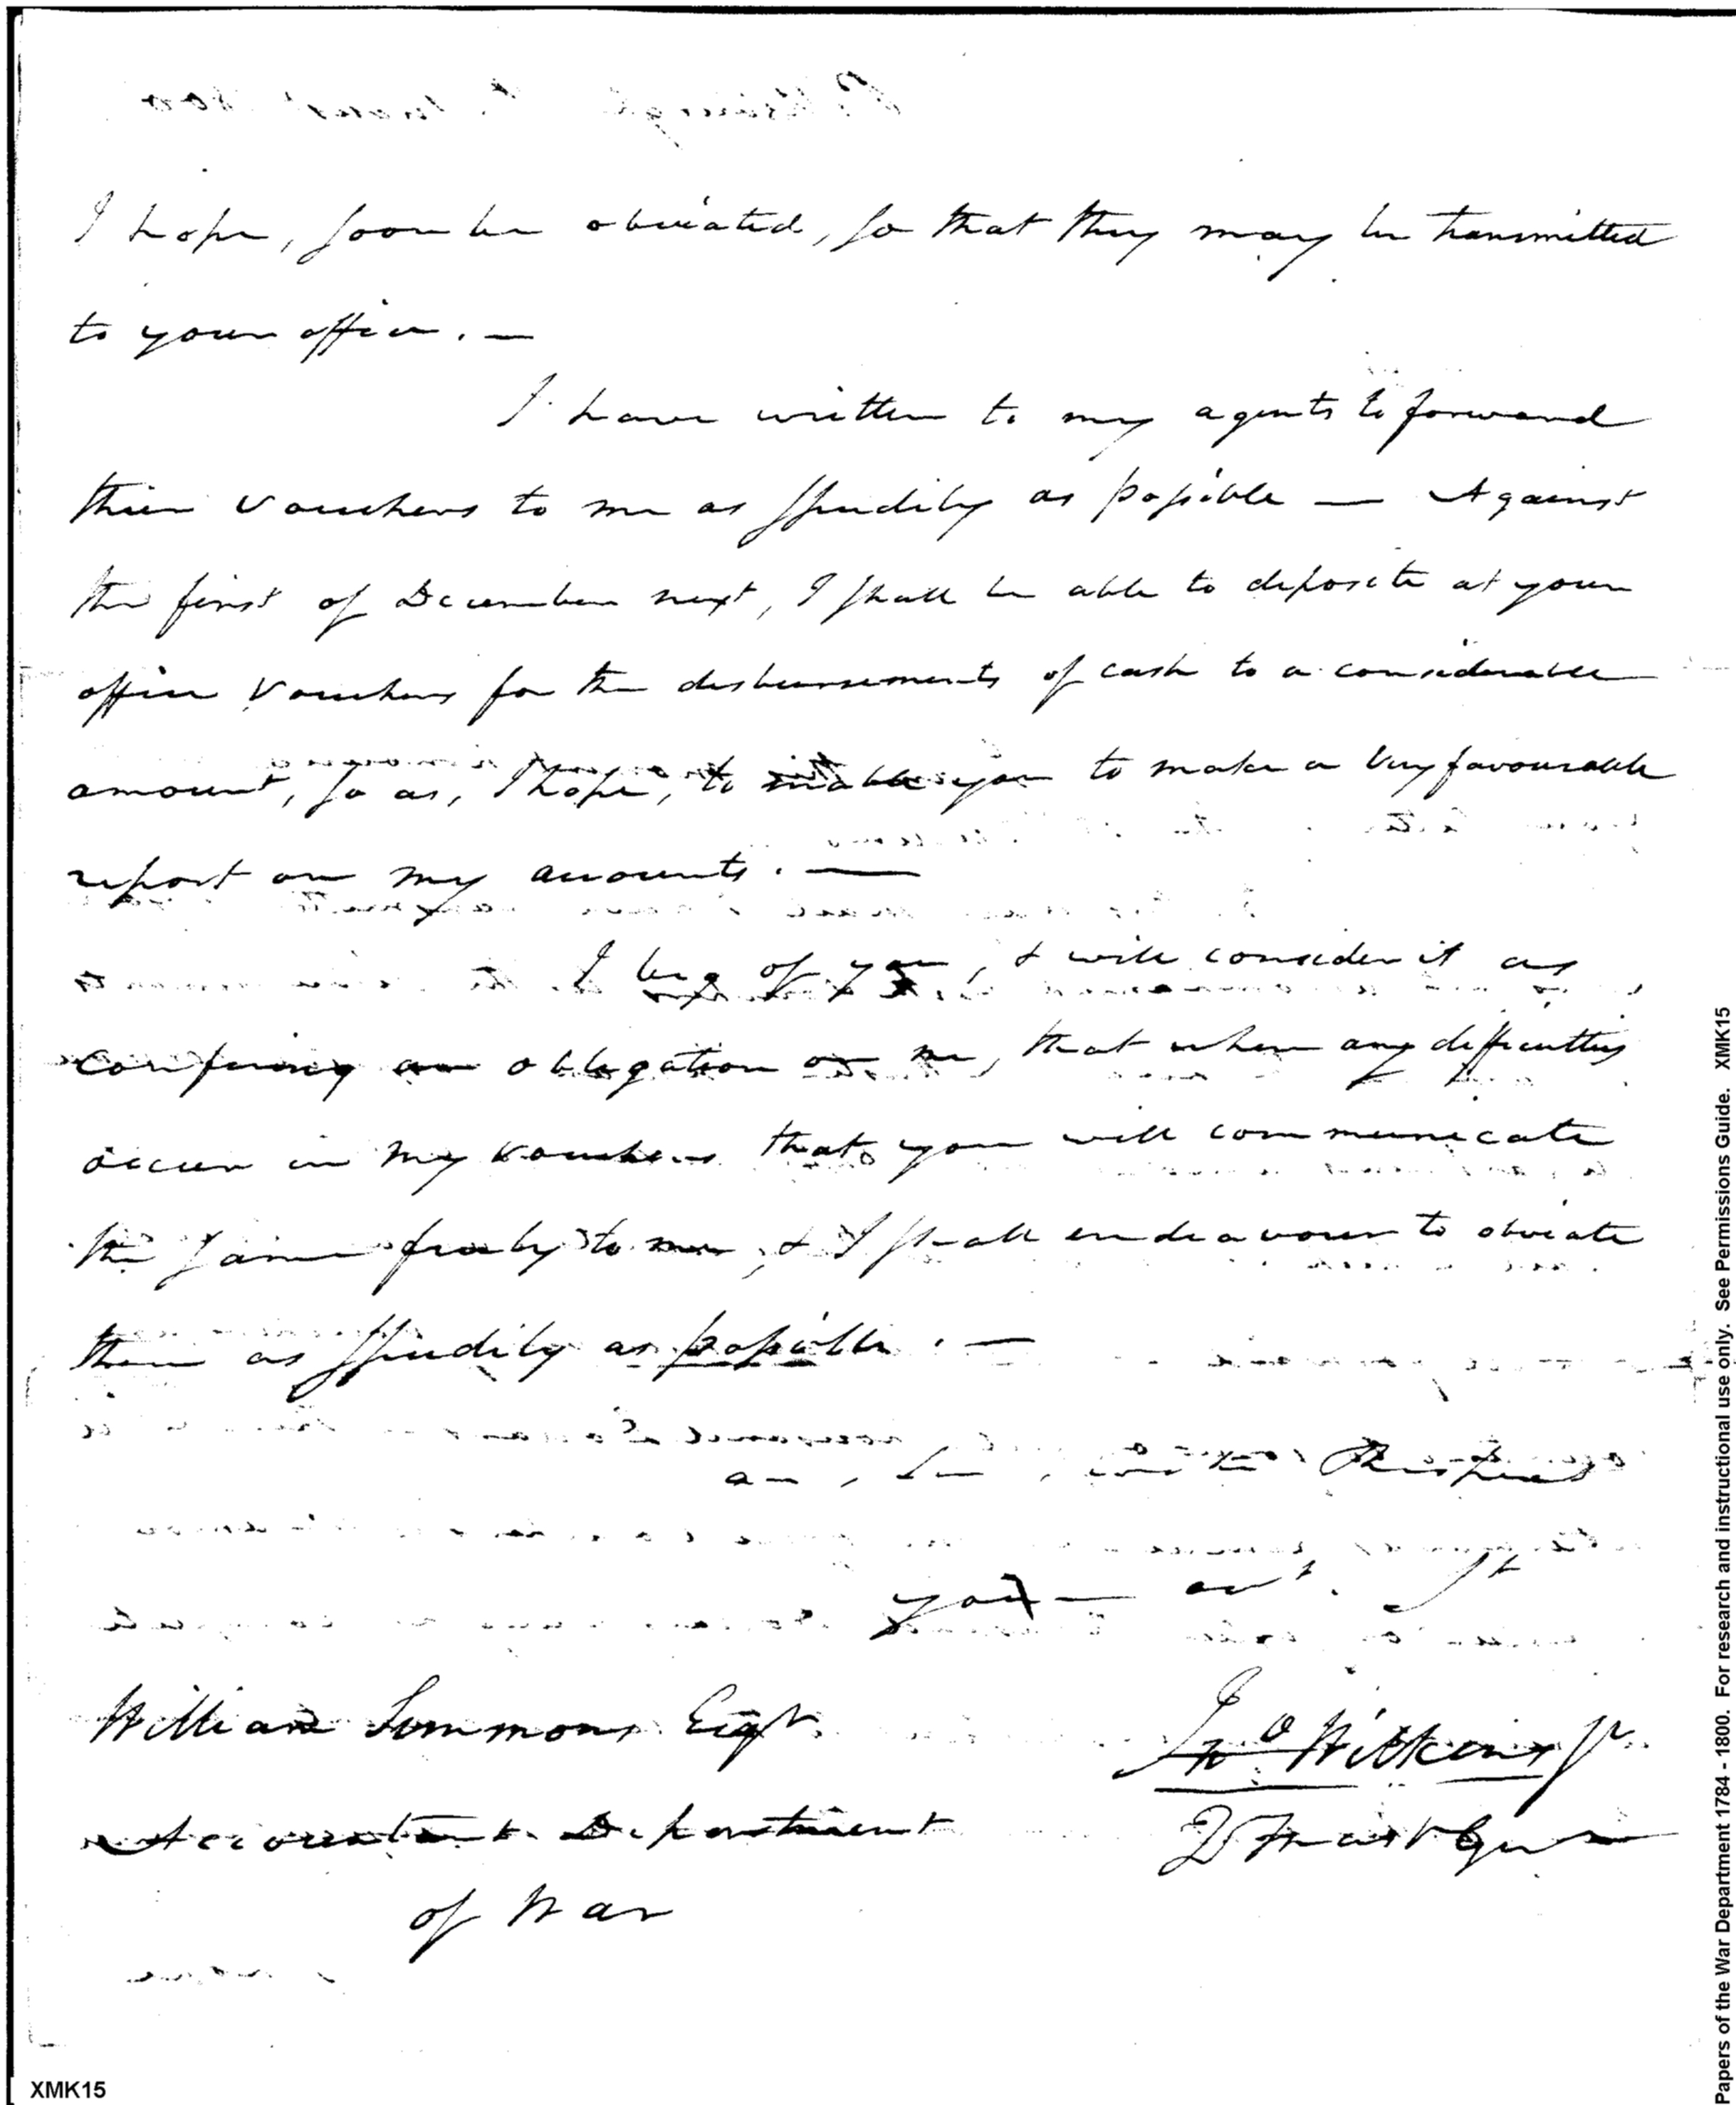 I hope, soon be obviated, so that they may be transmitted
to your office. —
I have written to my agents to forward
their vouchers to me as speedily as possible — Against
the first of December next, I shall be able to deposite at your
office vouchers for the disbursements of cash to a considerable
amount, so as, I hope, to enable you to make a very favourable
report on my accounts. —
I beg of you, & will consider it as
confering an obligation on me, that when any difficulties
occur in my vouchers that you will communicate
the same freely to me, & I shall endeavour to obviate
them as speedily as possible. —
am, Sir, with Respect
your obt. St
William Simmons Esqr.
Jno Wilkins Jr
Accountant Department
Qr Mast Genl
of War
XMK15
Papers of the War Department 1784 - 1800. For research and instructional use only. See Permissions Guide. XMK15